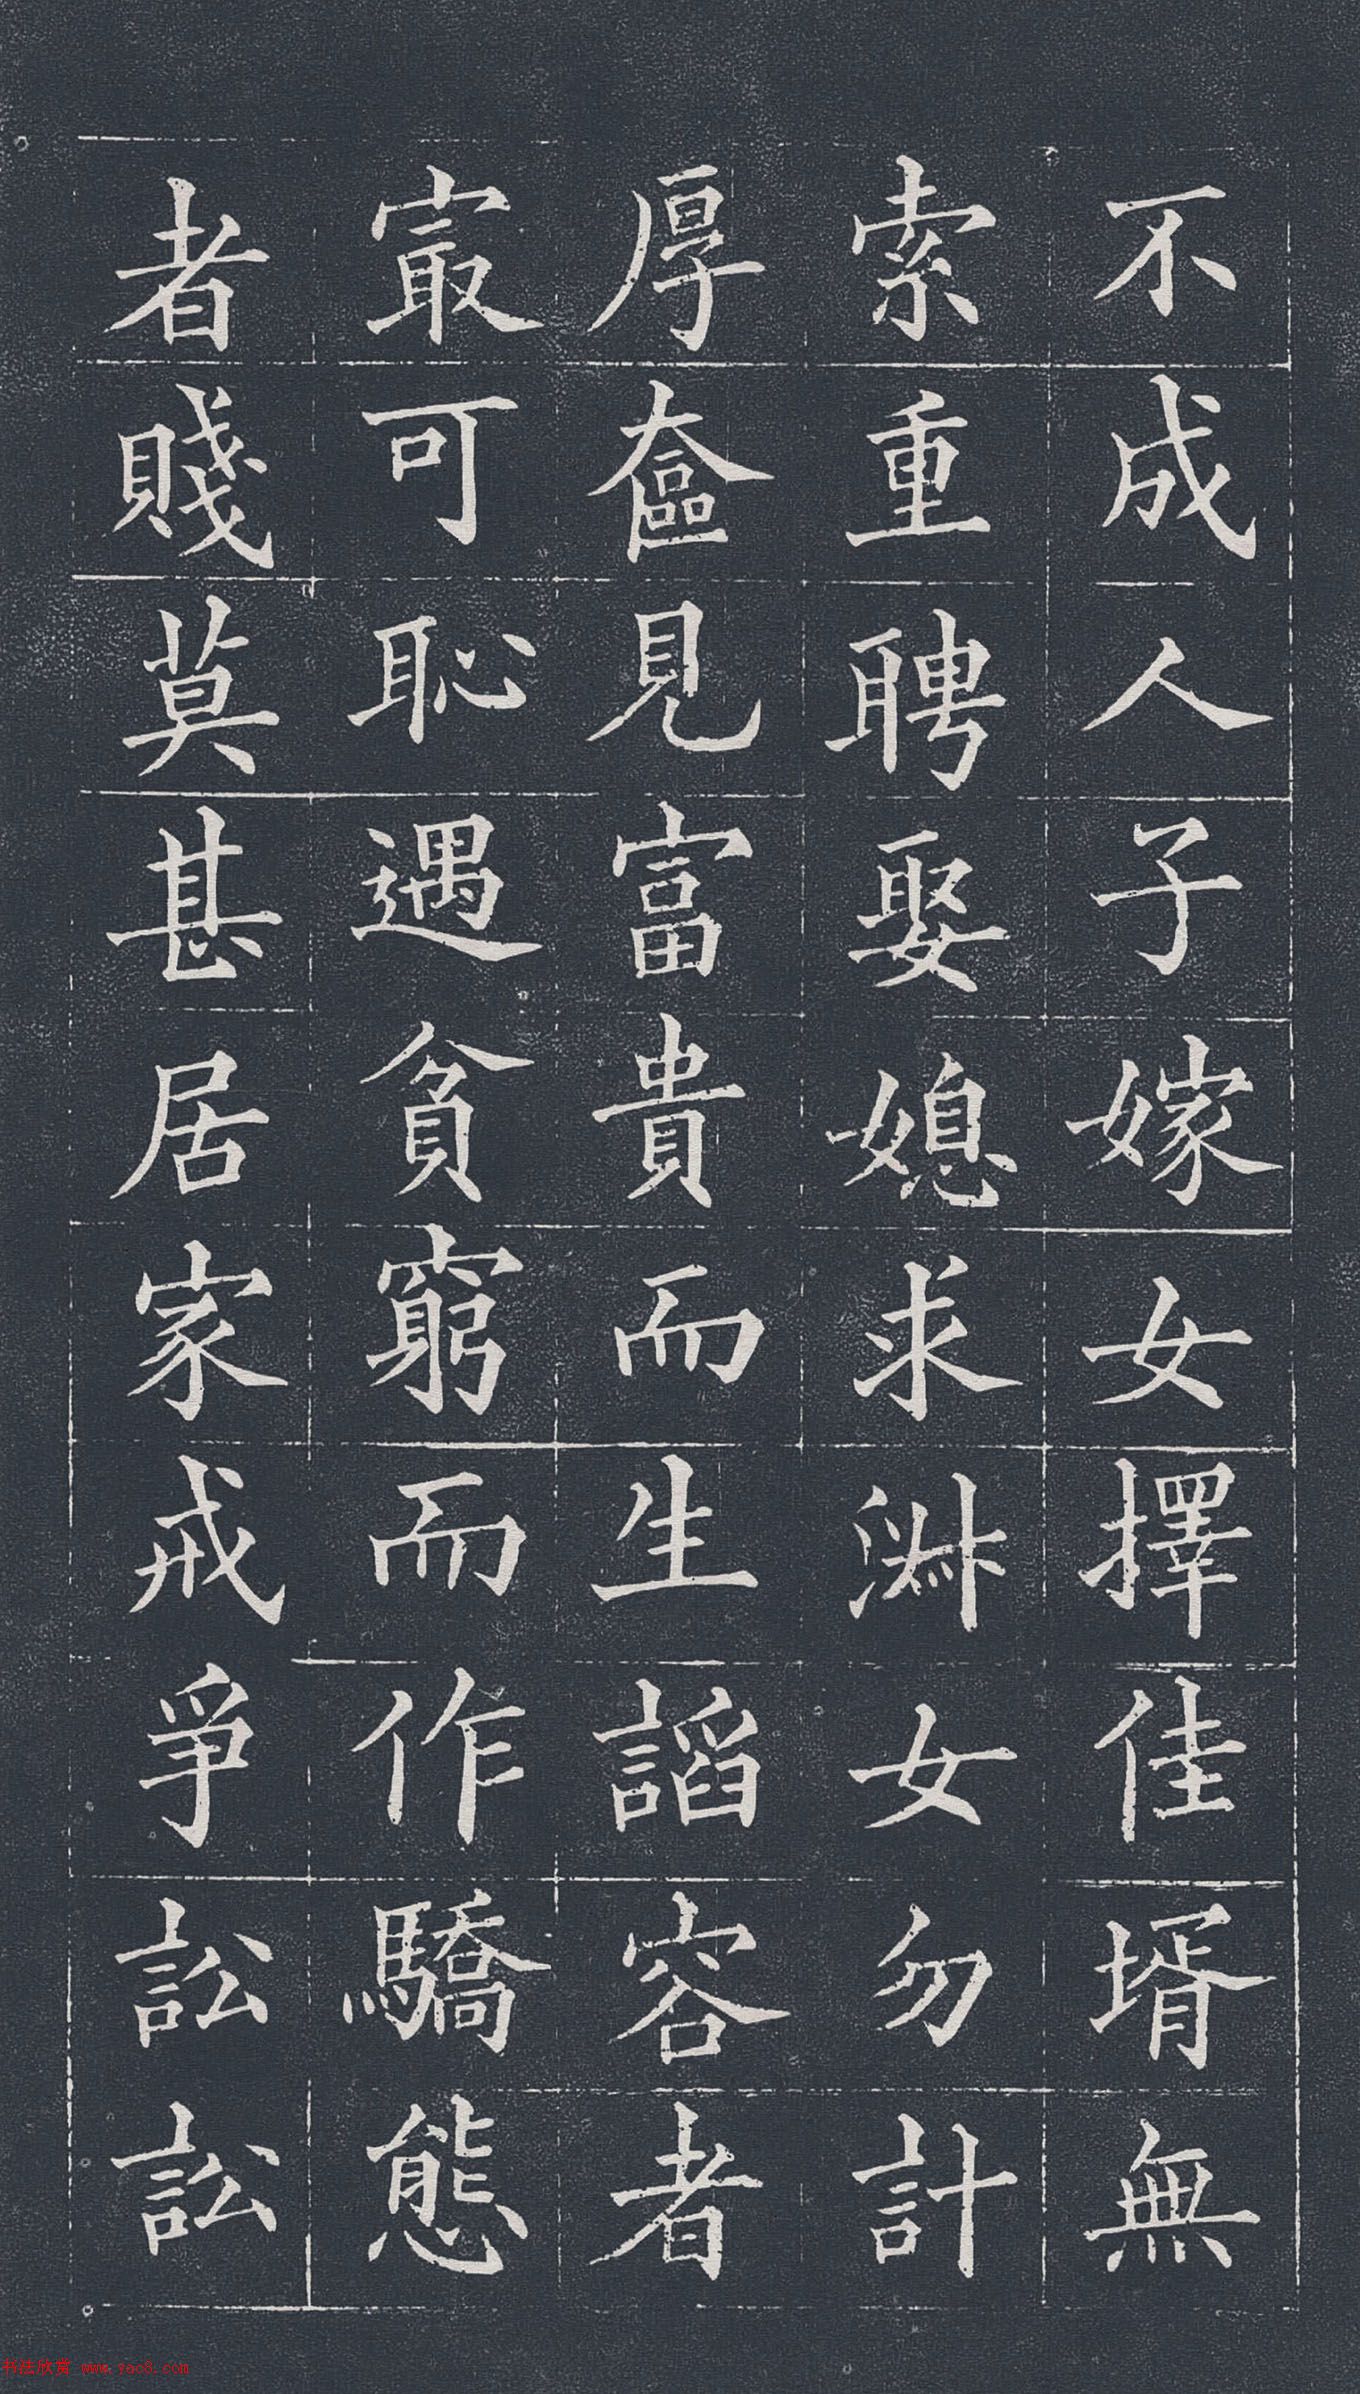 不成人子嫁女擇佳壻無
索重聘娶媳求淑女勿計
厚奩見富貴而生謟容者
冣可恥遇貧窮而作驕態
者賤莫甚居家戒爭訟訟
书法欣赏 www.yac8.com